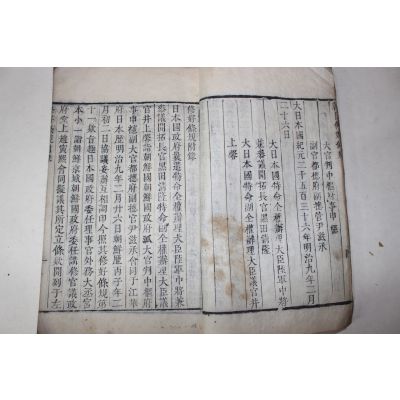 大官判中樞府事申櫶
副官都摠府副摠管尹滋承
大日本國紀元二千五百三十六年明治九年二月
二十六日
大日本國特命全權辦理大臣陸軍中將
兼參議開拓長官黑田清隆
大日本國特命副全權辦理大臣議官井
上馨
修好條規附錄
日本國政府曩遣特命全權辦理大臣陸軍中將兼
參議開拓長官黑田清隆特命副全權辦理大臣議
官井上馨詣朝鮮國政府派大官判中樞府
事申櫶副官都摠府副摠管尹滋承會同于江華
府日本曆明治九年二月廿六日朝鮮曆丙子年二
月初二日協議妥辦互相調印今照其修好條規第
十一款旨趣日本國政府委任理事官外務大丞宮
本小一詣朝鮮京城朝鮮國政府委任講修官議政
府堂上趙寅熙會同擬議其所定立條款開列于左